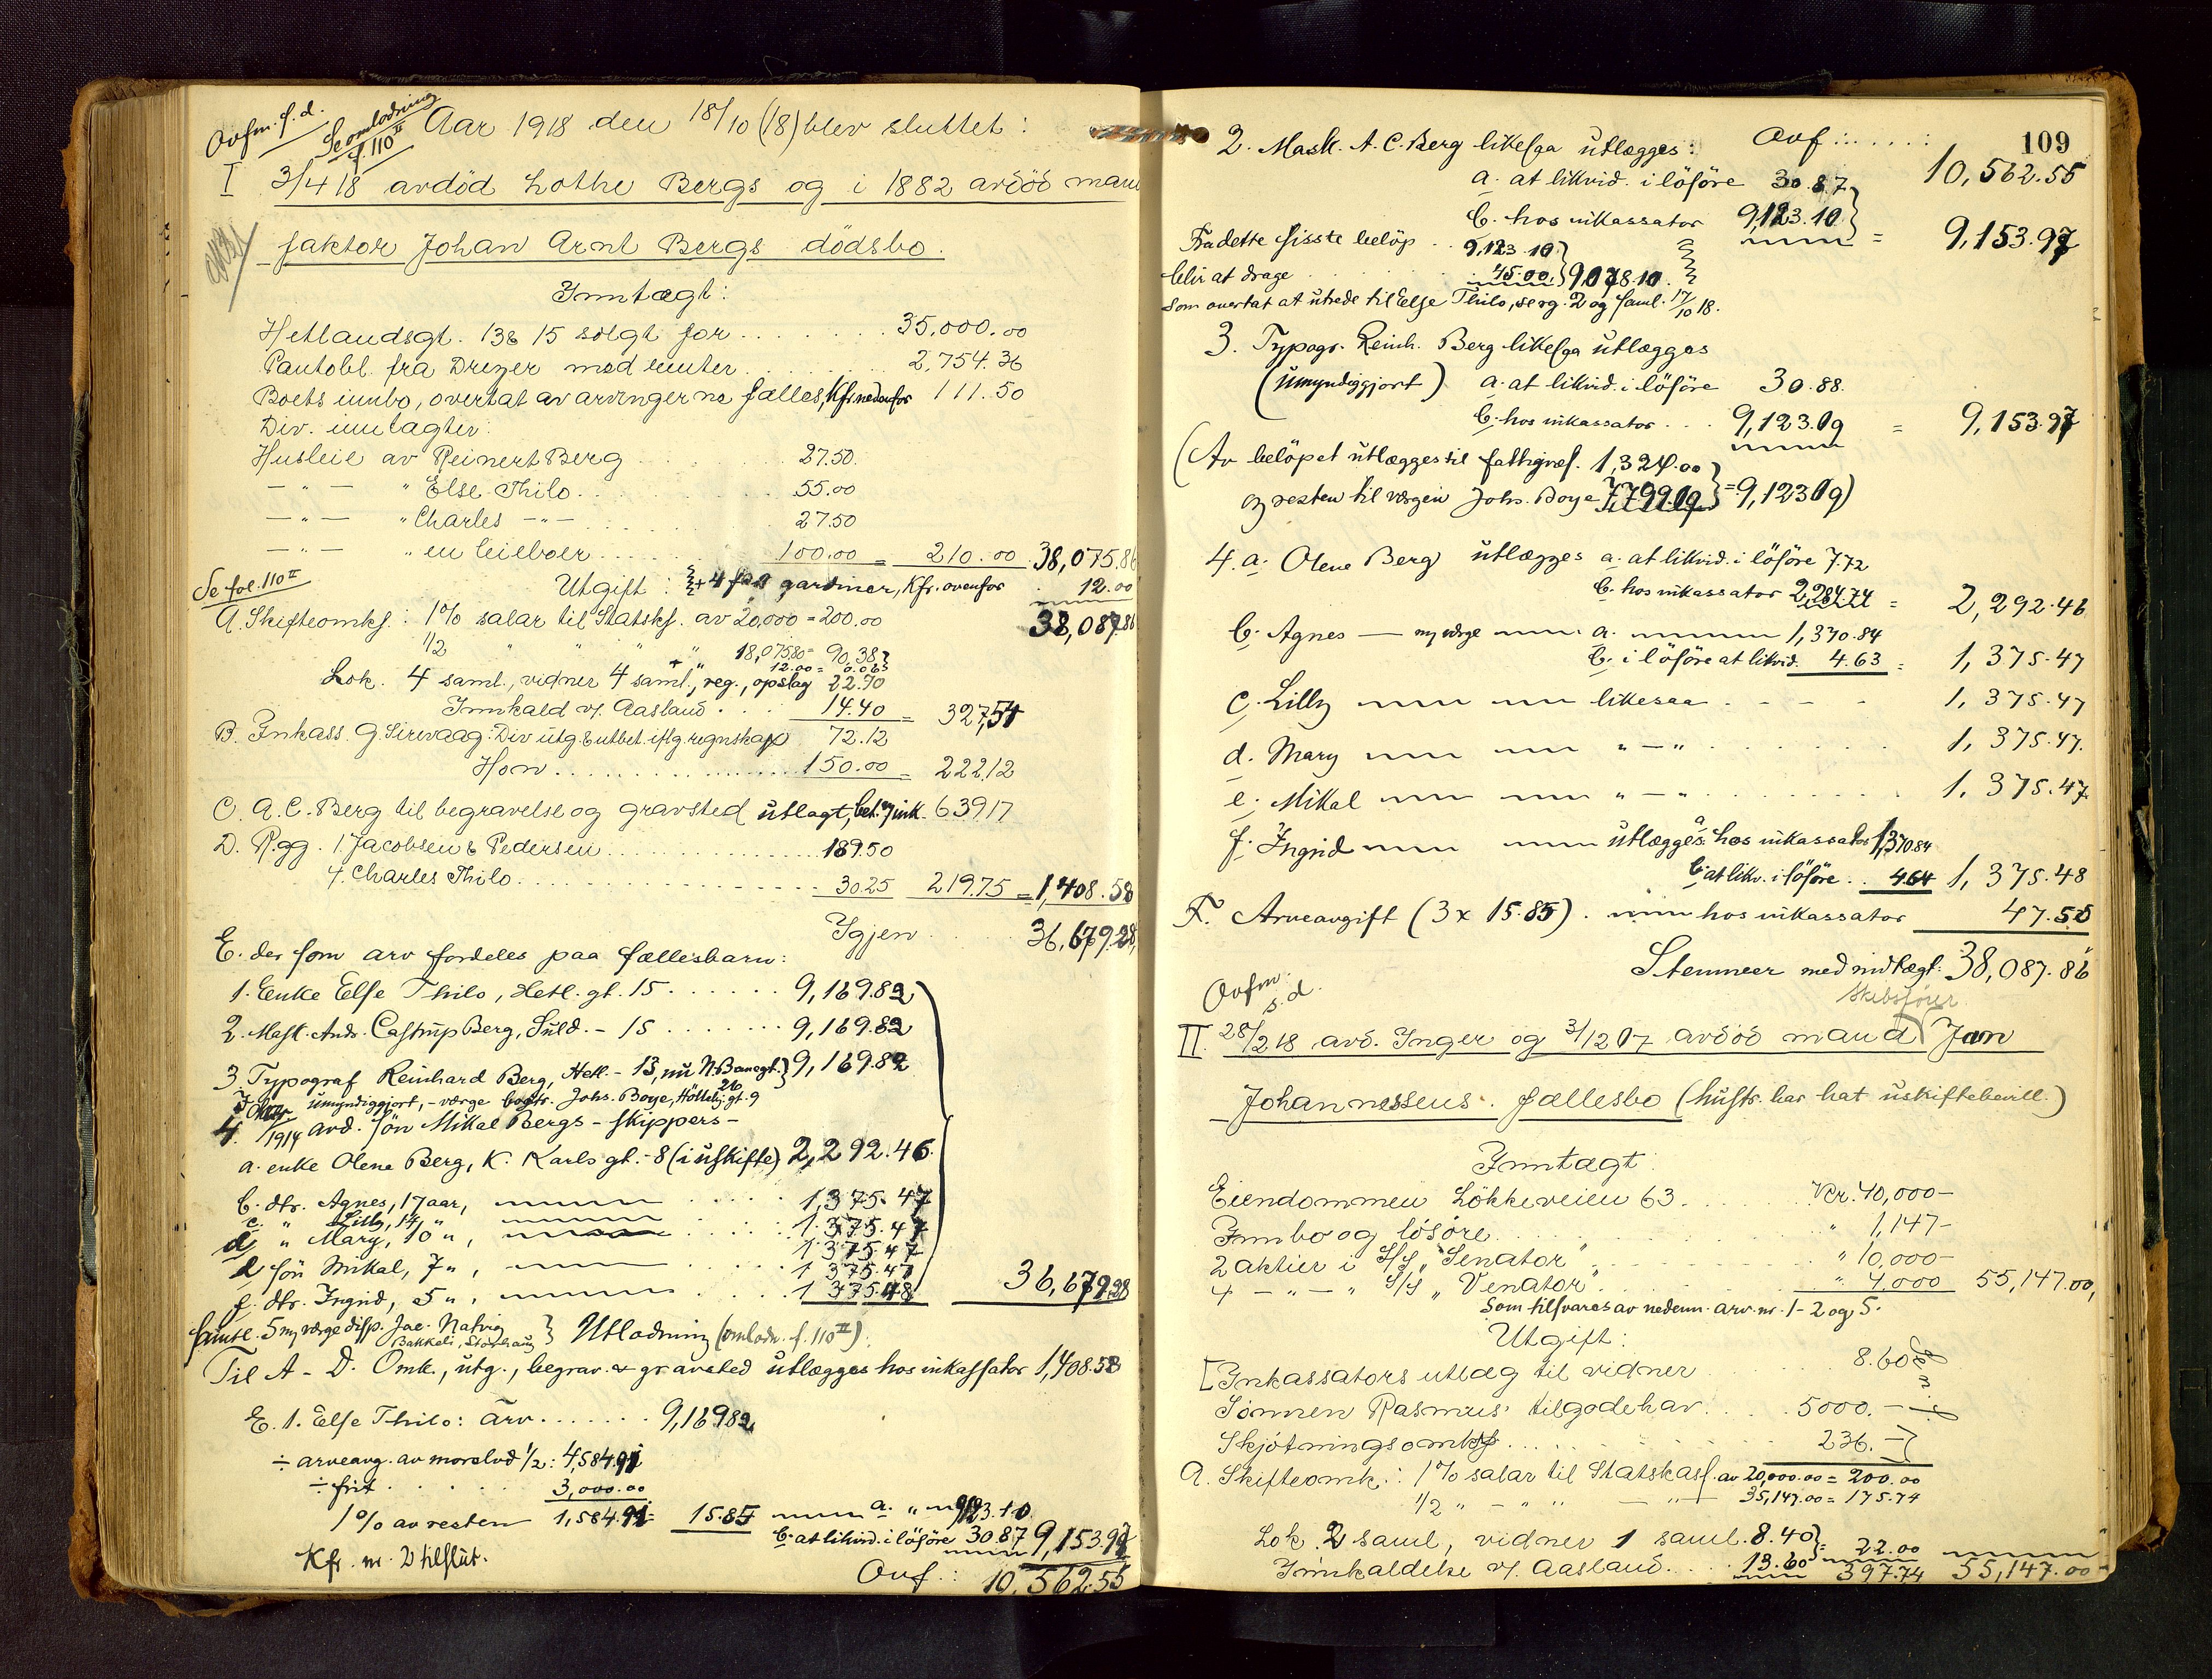 Ovfm. s. d.
Se omlodning
f. 110 II
Aar 1918 den 18/10 (18) blev sluttet:
I 3/4 18 avdöd Lothe Bergs og i 1882 avdöd mand
faktor Johan Arnt Bergs dödsbo.
Inntægt:
Hetlandsgt. 13 & 15 solgt for . . . . 35,000.00
Pantobl. fra Dreyer med renter . . . . 2,754.36
Boets innbo, overtat av arvingerne fælles, Kfr nedenfor 111.50
Div. inntægter:
Husleie av Reinert Berg . . . 27.50.
— " — " Else Thilo . . . 55.00
— " — " Charles — " — . . . 27.50
— " — " en leieboer . . . . 100.00 = 210.00 38,075.86
Se fol. 110 II
Utgift: + 4 fag gardiner, Kfr. ovenfor . 12.00
38,087.86
A. Skifteomk.: 1% salar til Statsk. av 20,000 = 200.00
1/2 " " " " 18,075.80 = 90.38
+ " 12.00 = 0.06
Lok. 4 saml., vidner 4 saml., reg., opslag 22.70
Innkald v/ Aasland . . . 14.40 = 327,54
B. Inkass. G. Sirevaag: Div utg & utbet. iflg. regnskap 72.12
Hon . . . . 150.00 = 222.12
C. A. C. Berg til begravelse og gravsted utlagt, bet. av ink. 639.17
D. P. gj. 1. Jacobsen & Pedersen . . . . 189.50
4. Charles Thilo . . . . 30.25 219.75 = 1,408.58
Igjen . . . 36,679.28
E. der som arv fordeles paa fællesbarn:
1. Enke Else Thilo, Hetl. gt. 15 . . . . 9,169.82
2. Mask. Andr. Castrup Berg, Suld. - 15 . . . . 9,169.82
3. Typograf Reinhard Berg, Hetl. - 13, nu N. Banegt. 26 9,169.82
umyndiggjort, - værge bogtr. Johs. Boye, Hölleby. gt. 9
4. 1914 avd. sön Mikal Bergs - skippers -
a. enke Olene Berg, K. Karls gt. - 8 (i uskifte) 2,292.46.
b. dtr. Agnes, 17 aar, . . . . 1,375.47
c. " Lilly, 14 " . . . . 1.375.47
d. " Mary, 10 ", . . . . 1 375.47
e. sön Mikal, 7 ", . . . . 1 375.47
f. dtr. Ingrid, 5 ", . . . . 1 375.48 36,679.28
samtl. 5 my værge disp. Jac. Natvig
Bakkeli, Storhaug
Utlodning (omlodn. f. 110 II).
Til A - D. Omk., utg., begrav. & gravsted utlægges hos inkassator 1,408.58
E. 1. Else Thilo: Arv . . . . . . 9,169.82
÷ arveavg. av morslod 1/2: 4,584.91
÷ frit . . . . 3,000.00
1% av resten 1,584.91 = 15.85 a. " 9,123.10
b. at likvid. i lösöre 30.87 9,153.97
Kfr. nr. 2 tilslut.
Ovf.: 10,562.55
109
2. Mask. A. C. Berg likesaa utlægges: Ovf : . . . . . :
a. at likvid. i lösöre 30.87 10,562.55
b. hos inkassator 9,123.10 = 9,153.97
Fra dette sisste belöp . . 9,123.10
blir at drage . . . . 45.00 9,078.10.
som overtat at utrede til Else Thilo, se rg. 2 og saml. 17/10 18.
3. Typogr. Reinh. Berg likesaa utlægges
(umyndiggjort) a. at likvid. i lösöre 30.88.
b. hos inkassator . . . 9,123.09 = 9,153.97
(Av belöpet utlægges til fattigvæs. 1,324.00
og resten til værgen Johs. Boye 7,799.09 = 9,123.09)
4. a. Olene Berg utlægges a. at likvid. i lösöre 7.72
b. hos inkassator 2,284.74 = 2,292.46
b. Agnes — my værge a. 1,370.84
b. i lösöre at likvid. 4.63 = 1,375.47
c. Lilly likesaa . - - - 1,375.47
d. Mary " — " . . . . . . 1,375.47.
e. Mikal " — " . . . . . . 1,375.47
f. Ingrid utlægges a. hos inkassator 1,370.84
b. at likv. i lösöre . . 4.64 1,375.48
F. Arveavgift (3 x 15.85) . hos inkassator 47.55
Stemmer med indtægt: 38,087.86
Ovfm.
s. d.
Skibsförer
II. 28/2 18 avd. Inger og 3/12 07 avdöd mand Jan
Johannessens fællesbo (hustr. har hat uskiftebevill.)
Inntægt:
Eiendommen Lökkeveien 63 . . . . Kr. 40,000 —
Innbo og lösöre . . . . " 1,147 —
2 aktier i S/S „Senator" . . . . " 10,000 —
4 — " — " S/S „Venator" . . . . " 4.000 55,147.00,
Som tilsvares av nedenn. arv. nr. 1 - 2 og 5.
Utgift:
Inkassators utlæg til vidner . . 8.60
Sönnen Rasmus' tilgodehav. . . . 5000. —
Skjötningsomk . . . . 236. —
A. Skifteomk.: 1% salar til Statskass. av 20,000.00 = 200.00
1/2 " — " " — " — 35,147.00 = 175.74
Lok. 2 saml., vidner 1 saml. 8.40
Innkaldelse v/ Aasland . . . 13.60 = 22.00
397.74 55,147.00